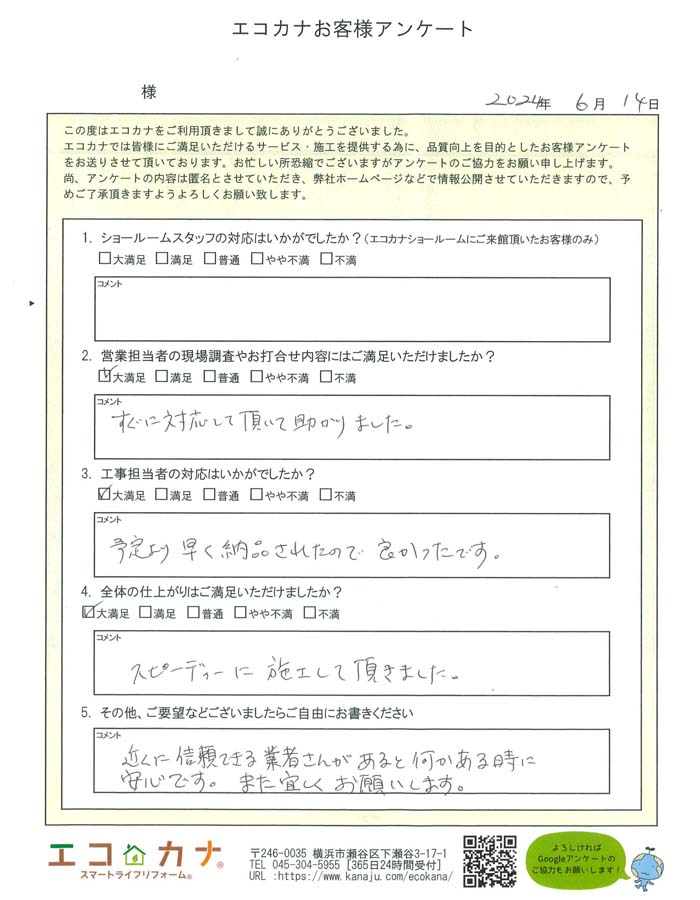 エコカナお客様アンケート
様
2024年 6月 14日
この度はエコカナをご利用頂きまして誠にありがとうございました。
エコカナでは皆様にご満足いただけるサービス・施工を提供する為に、品質向上を目的としたお客様アンケート
をお送りさせて頂いております。お忙しい所恐縮でございますがアンケートのご協力をお願い申し上げます。
尚、アンケートの内容は匿名とさせていただき、弊社ホームページなどで情報公開させていただきますので、予
めご了承頂きますようよろしくお願い致します。
1. ショールームスタッフの対応はいかがでしたか?(エコカナショールームにご来館頂いたお客様のみ)
□大満足 □満足 □普通 □やや不満 □不満
コメント
2. 営業担当者の現場調査やお打合せ内容にはご満足いただけましたか?
☑大満足 □満足 □普通 □やや不満 □不満
コメント
すぐに対応して頂いて助かりました。
3. 工事担当者の対応はいかがでしたか?
☑大満足 □満足 □普通 □やや不満 □不満
コメント
予定より早く納品されたので良かったです。
4. 全体の仕上がりはご満足いただけましたか?
☑大満足 □満足 □普通 □やや不満 □不満
コメント
スピーディーに施工して頂きました。
5. その他、ご要望などございましたらご自由にお書きください
コメント
近くに信頼できる業者さんがあると何かある時に
安心です。また宜しくお願いします。
エコカナ®
スマートライフリフォーム®
〒246-0035 横浜市瀬谷区下瀬谷3-17-1
TEL 045-304-5955 [365日24時間受付]
URL :https://www.kanaju.com/ecokana/
よろしければ
Googleアンケートの
ご協力もお願いします!